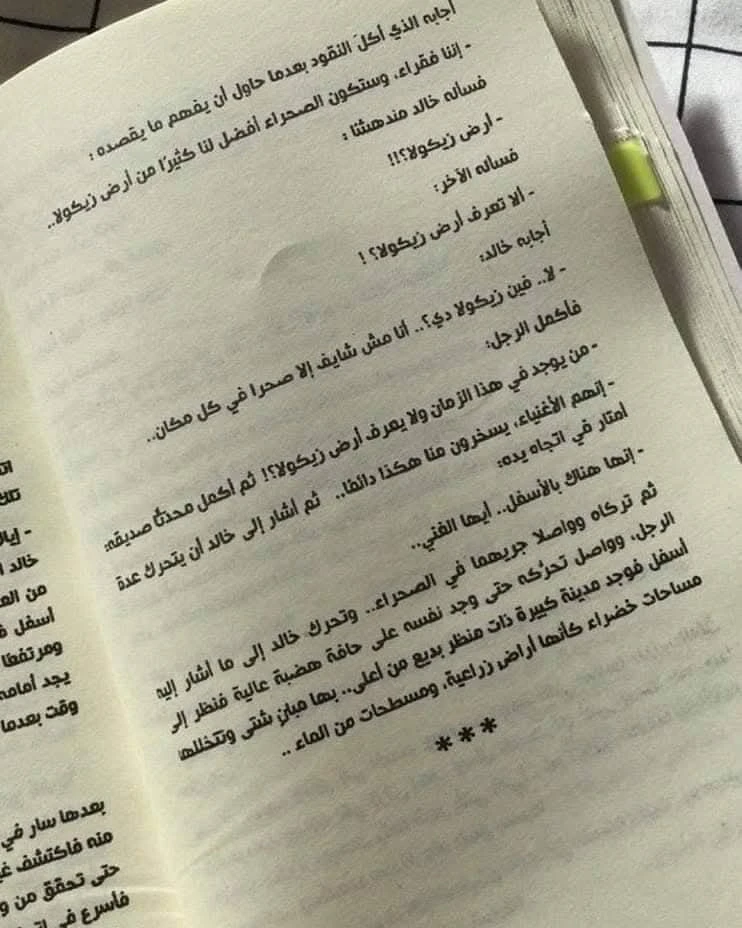 أجابه الذي أكلَ النقود بعدما حاول أن يفهم ما يقصده :
- إننا فقراء، وستكون الصحراء أفضل لنا كثيرًا من أرض زيكولا..
فسأله خالد مندهشًا :
- أرض زيكولا؟!!
فسأله الآخر:
- ألا تعرف أرض زيكولا؟ !
أجابه خالد:
- لا.. فين زيكولا دي؟.. أنا مش شايف إلا صحرا في كل مكان..
فأكمل الرجل:
- من يوجد في هذا الزمان ولا يعرف أرض زيكولا؟! ثم أكمل محدثًا صديقه:
- إنهم الأغنياء، يسخرون منا هكذا دائمًا.. ثم أشار إلى خالد أن يتحرك عدة
أمتار في اتجاه يده:
- إنها هناك بالأسفل.. أيها الغني..
ثم تركاه وواصلا جريهما في الصحراء.. وتحرك خالد إلى ما أشار إليه
الرجل، وواصل تحرُّكه حتى وجد نفسه على حافة هضبة عالية فنظر إلى
أسفل فوجد مدينة كبيرة ذات منظر بديع من أعلى.. بها مبانٍ شتى وتتخللها
مساحات خضراء كأنها أراض زراعية، ومسطحات من الماء ..
***
تلك
خالد
من
أسفل
ومرتفعًا
يجد أمامه
وقت بعدما
بعدها سار في
منه فاكتشف
حتى تحقق من
فأسرع في